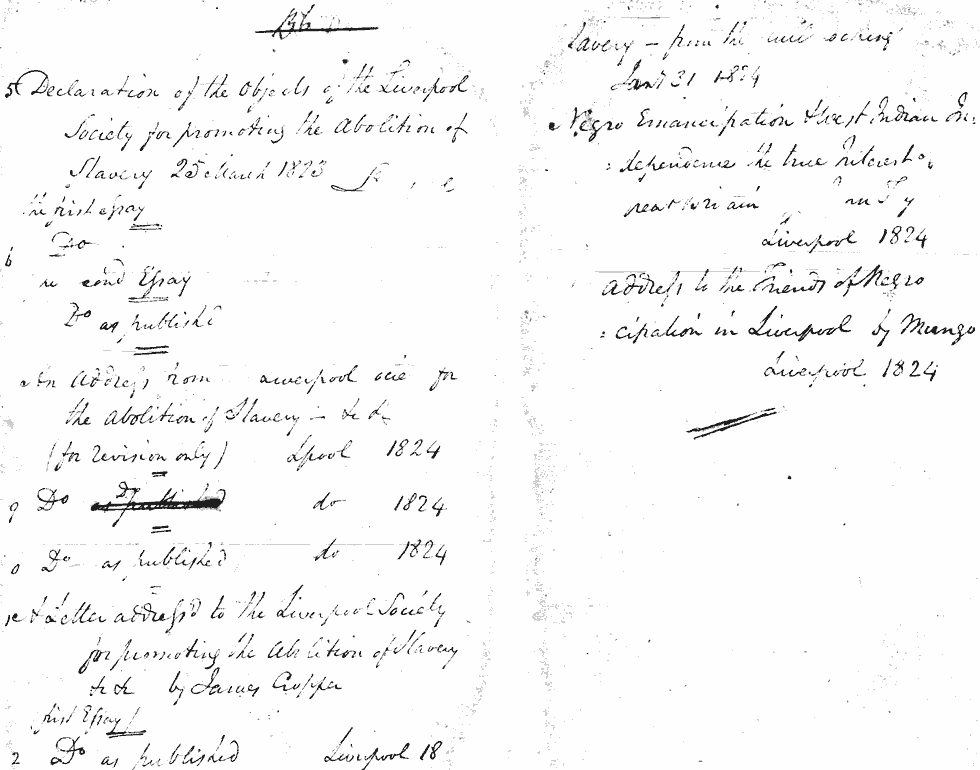 5 Declaration of the Objects of the Liverpool
Society for promoting the Abolition of
Slavery 25 March 1823
the first Essay
6 Do
second Essay
Do as published
An Address from Liverpool for
the Abolition of Slavery – &c &c
(for revision only) Lpool 1824
9 Do do 1824
0 Do as published do 1824
A Letter address'd to the Liverpool Society
for promoting the Abolition of Slavery
&c &c by James Cropper
first Essay/
2 Do as published Liverpool 18
Slavery – from the
Jany 31 1824
Negro Emancipation & West Indian In:
:dependence the true Interest of
Great Britain
Liverpool 1824
Address to the Friends of Negro
:cipation in Liverpool by Mungo
Liverpool 1824